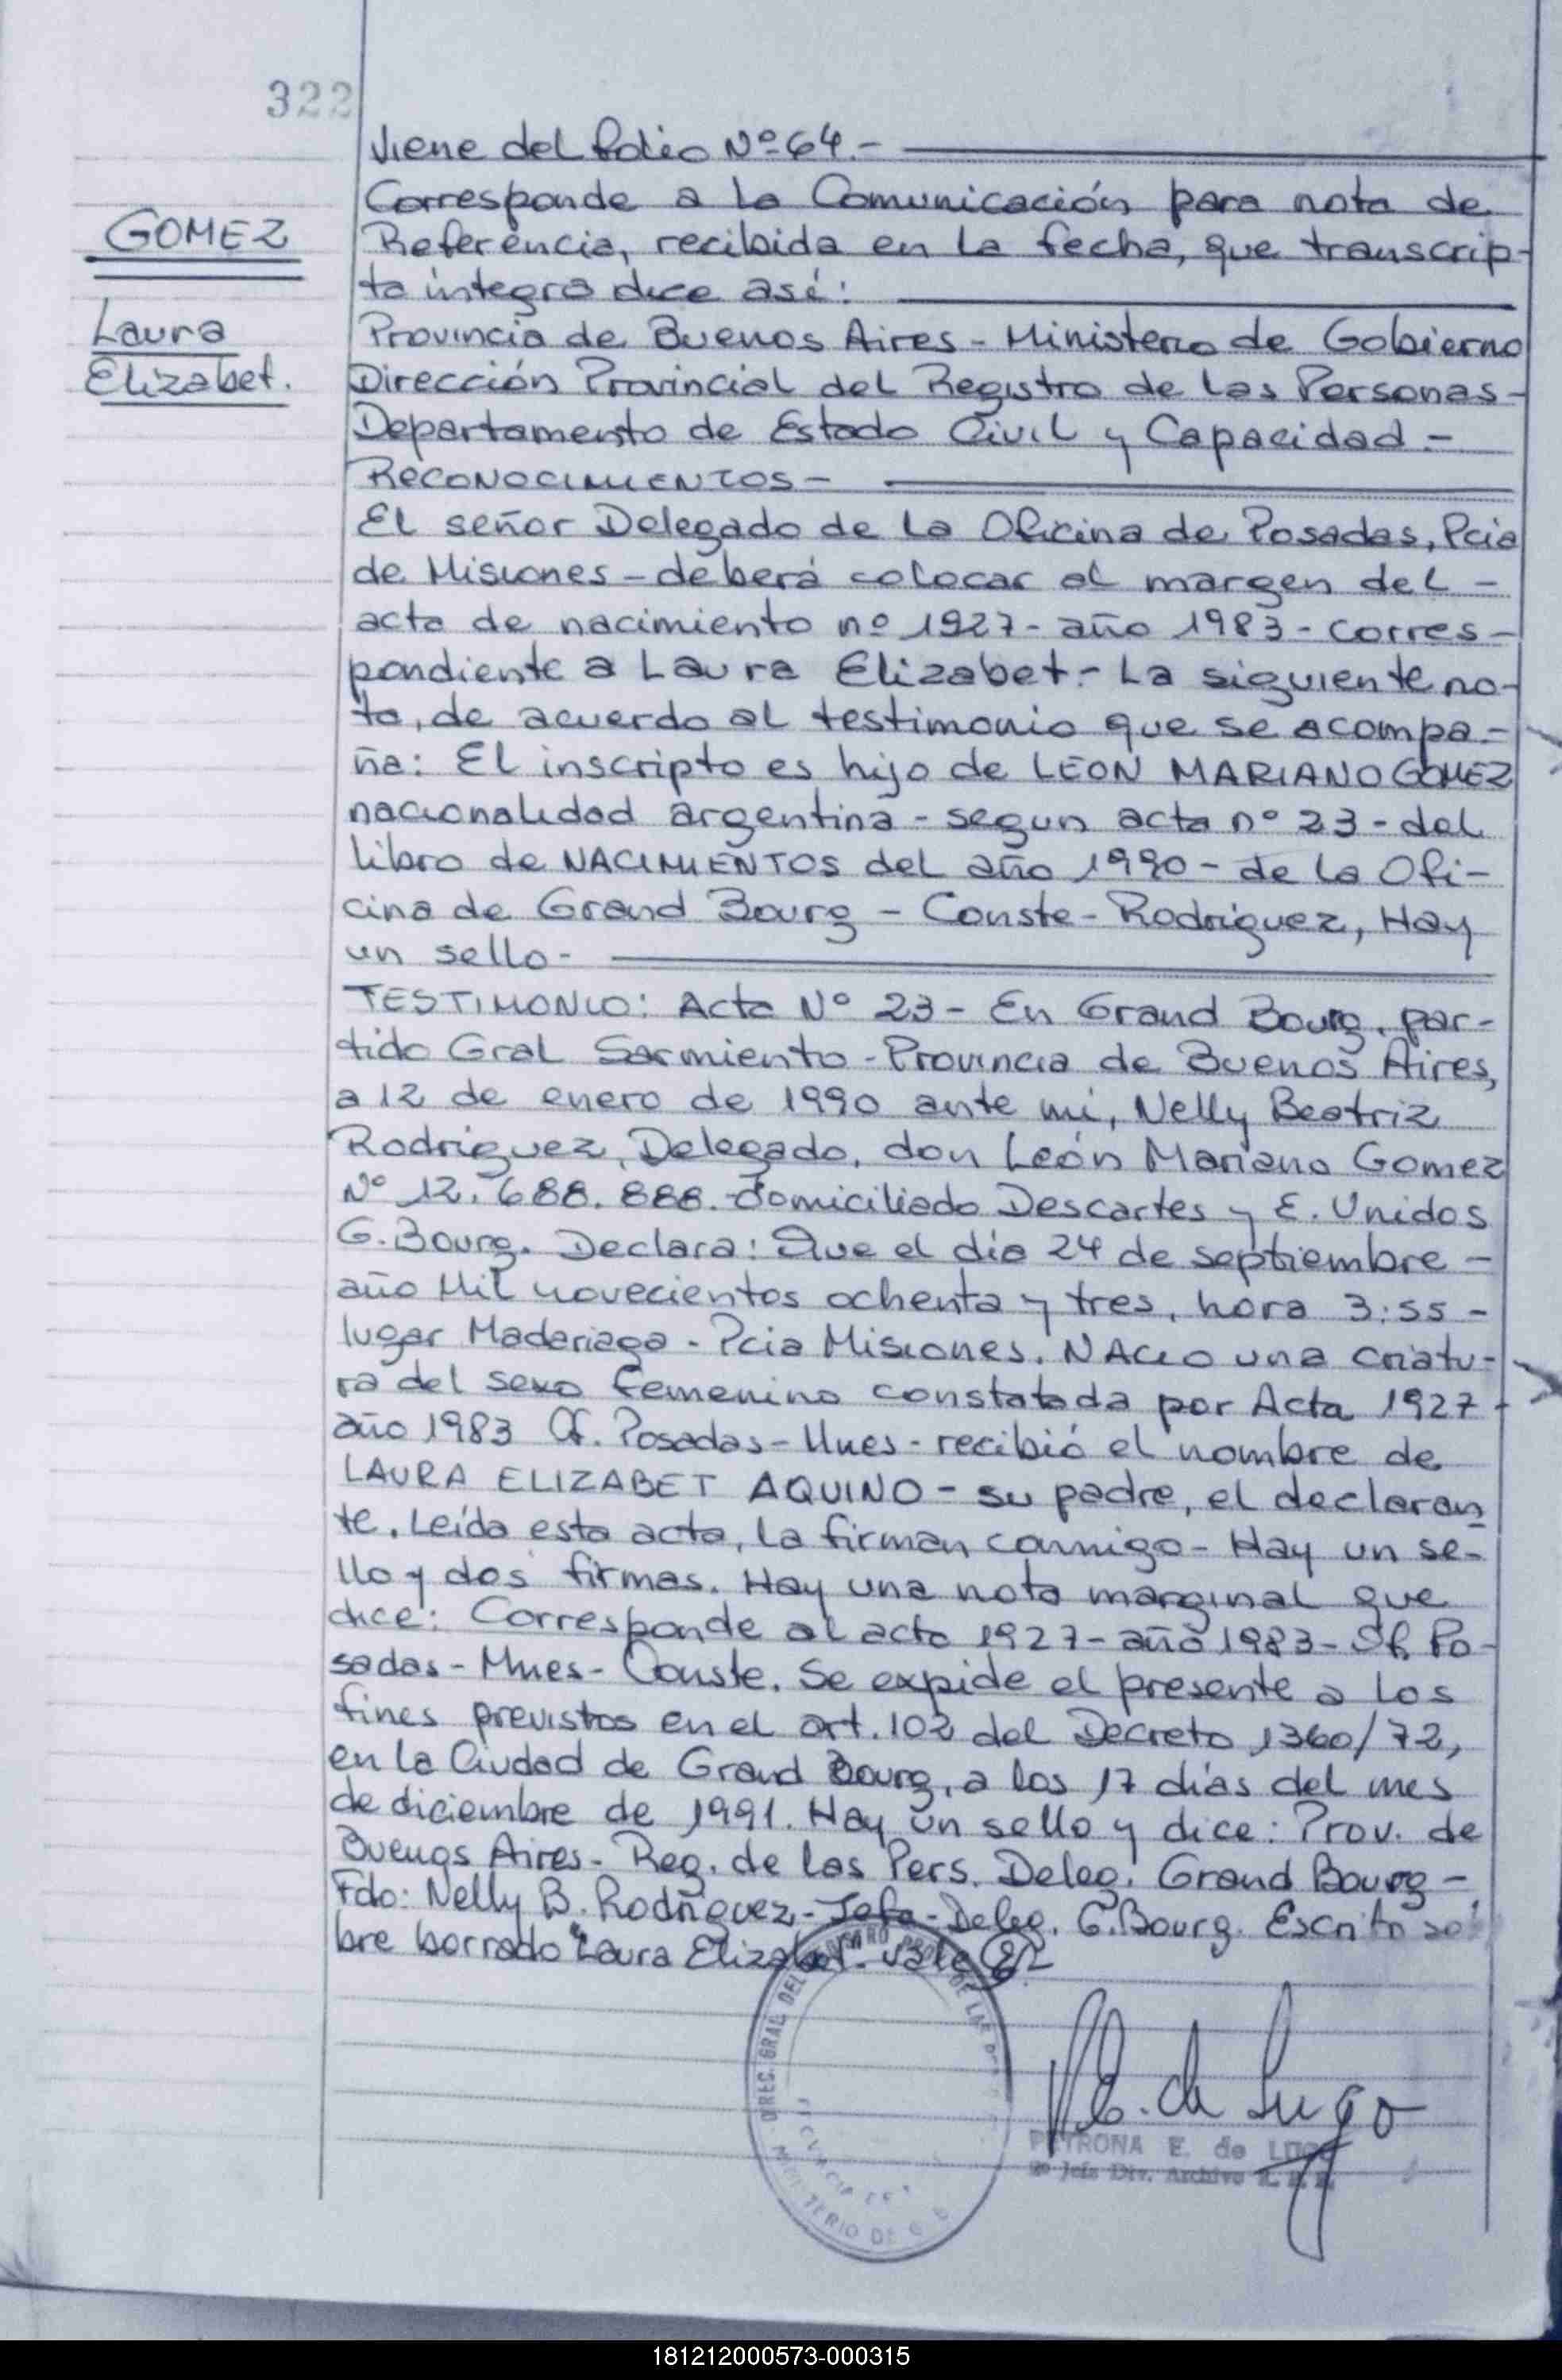 322
GOMEZ
Laura
Elizabet.
Viene del folio Nº 64.-
Corresponde a la Comunicación para nota de
Referencia, recibida en la fecha, que transcrip-
ta integra dice así:
Provincia de Buenos Aires - Ministerio de Gobierno
Dirección Provincial del Registro de las Personas -
Departamento de Estado Civil y Capacidad -
RECONOCIMIENTOS -
El señor Delegado de la Oficina de Posadas, Pcia
de Misiones - deberá colocar al margen del -
acta de nacimiento nº 1927 - año 1983 - corres-
pondiente a Laura Elizabet - La siguiente no-
ta, de acuerdo al testimonio que se acompa-
ña: El inscripto es hijo de LEON MARIANO GOMEZ
nacionalidad argentina - segun acta nº 23 - del
libro de NACIMIENTOS del año 1990 - de la Ofi-
cina de Grand Bourg - Conste - Rodriguez, Hay
un sello -
TESTIMONIO: Acta Nº 23 - En Grand Bourg, par-
tido Gral Sarmiento - Provincia de Buenos Aires,
a 12 de enero de 1990 ante mi, Nelly Beatriz
Rodriguez, Delegado, don León Mariano Gomez
Nº 12.688.888. domiciliado Descartes y E. Unidos
G. Bourg. Declara: Que el día 24 de septiembre -
año Mil novecientos ochenta y tres, hora 3:55 -
lugar Madariaga - Pcia Misiones. NACIO una criatu-
ra del sexo femenino constatada por Acta 1927 -
año 1983 Of. Posadas - Mnes - recibió el nombre de
LAURA ELIZABET AQUINO - su padre, el declaran
te. Leída esta acta, la firman conmigo - Hay un se-
llo y dos firmas. Hay una nota marginal que
dice: Corresponde al acta 1927 - año 1983 - Of. Po-
sadas - Mnes - Conste. Se expide el presente a los
fines previstos en el art. 102 del Decreto 1360/72,
en la Ciudad de Grand Bourg, a los 17 días del mes
de diciembre de 1991. Hay un sello y dice: Prov. de
Buenos Aires - Reg. de las Pers. Deleg. Grand Bourg -
Fdo: Nelly B. Rodríguez - Jefa - Deleg. G. Bourg. Escrito so
bre borrado "Laura Elizabet". vale
DIREC. GRAL. DEL REGISTRO PROV. DE LAS
E. de Lugo
PETRONA E. de LUGO
Jefe Div. Archivo
181212000573-000315